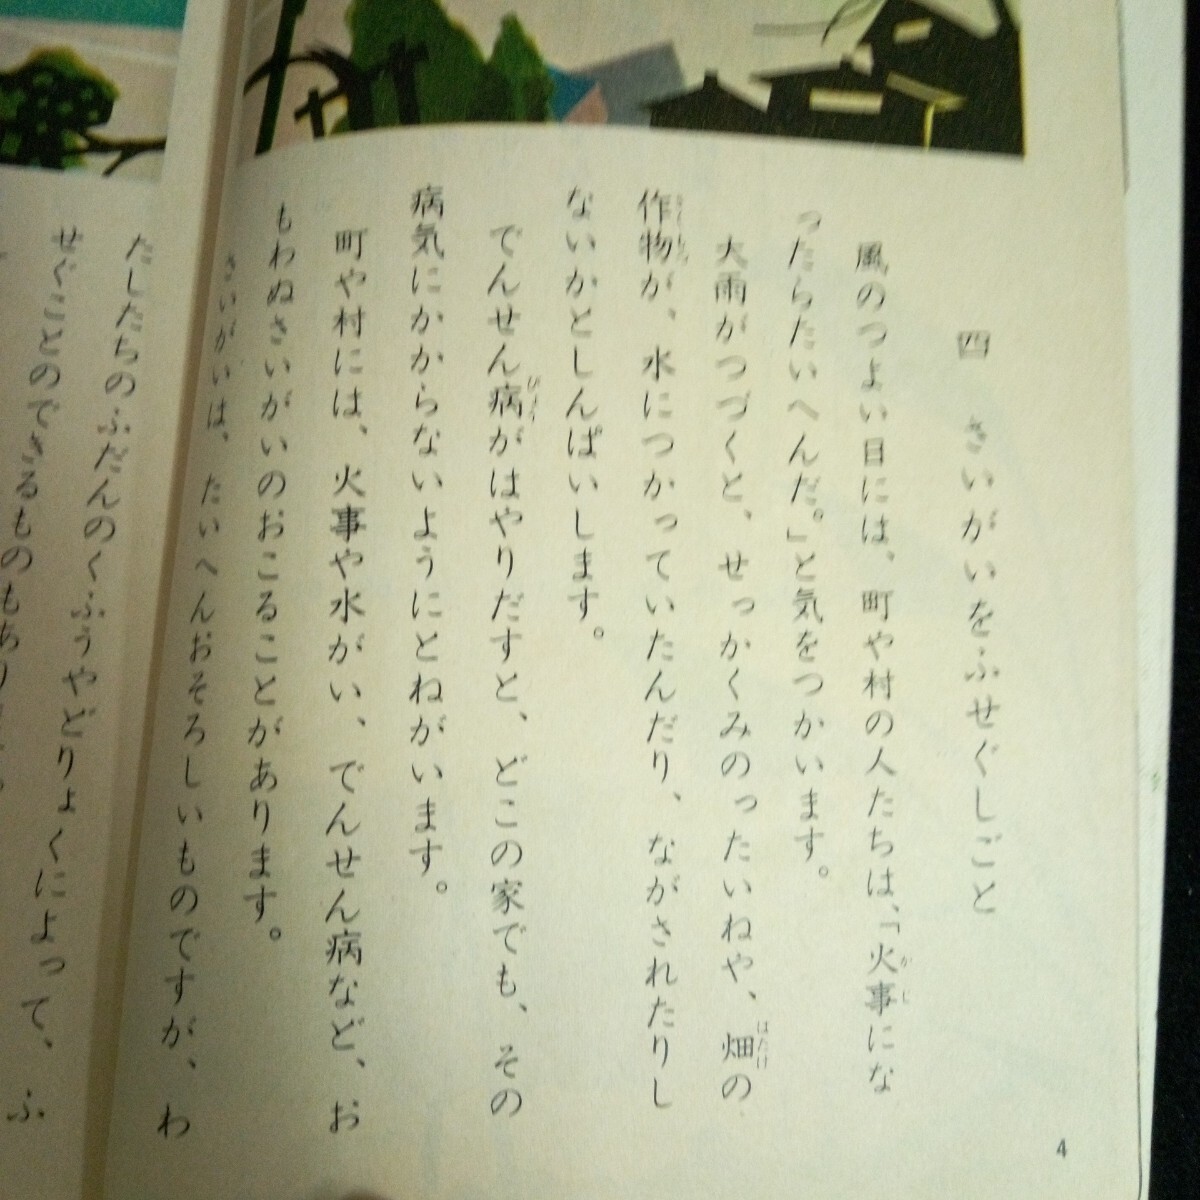 四 さいがいをふせぐしごと
風のつよい日には、町や村の人たちは、「火事にな
ったらたいへんだ。」と気をつかいます。
大雨がつづくと、せっかくみのったいねや、畑の
作物が、水につかっていたんだり、ながされたりし
ないかとしんぱいします。
でんせん病がはやりだすと、どこの家でも、その
病気にかからないようにとねがいます。
町や村には、火事や水がい、でんせん病など、お
もわぬさいがいのおこることがあります。
さいがいは、たいへんおそろしいものですが、わ
たしたちのふだんのくふうやどりょくによって、ふ
せぐことのできるものもあり
4